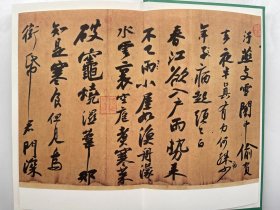 汙燕支雪闇中偷負
去夜半真有力何殊病少
年子病起頭已白
春江欲入戶雨勢來
不已雨小屋如漁舟濛濛
水雲裏空庖煮寒菜
破竈燒濕葦那
知是寒食但見烏
銜帋 君門深